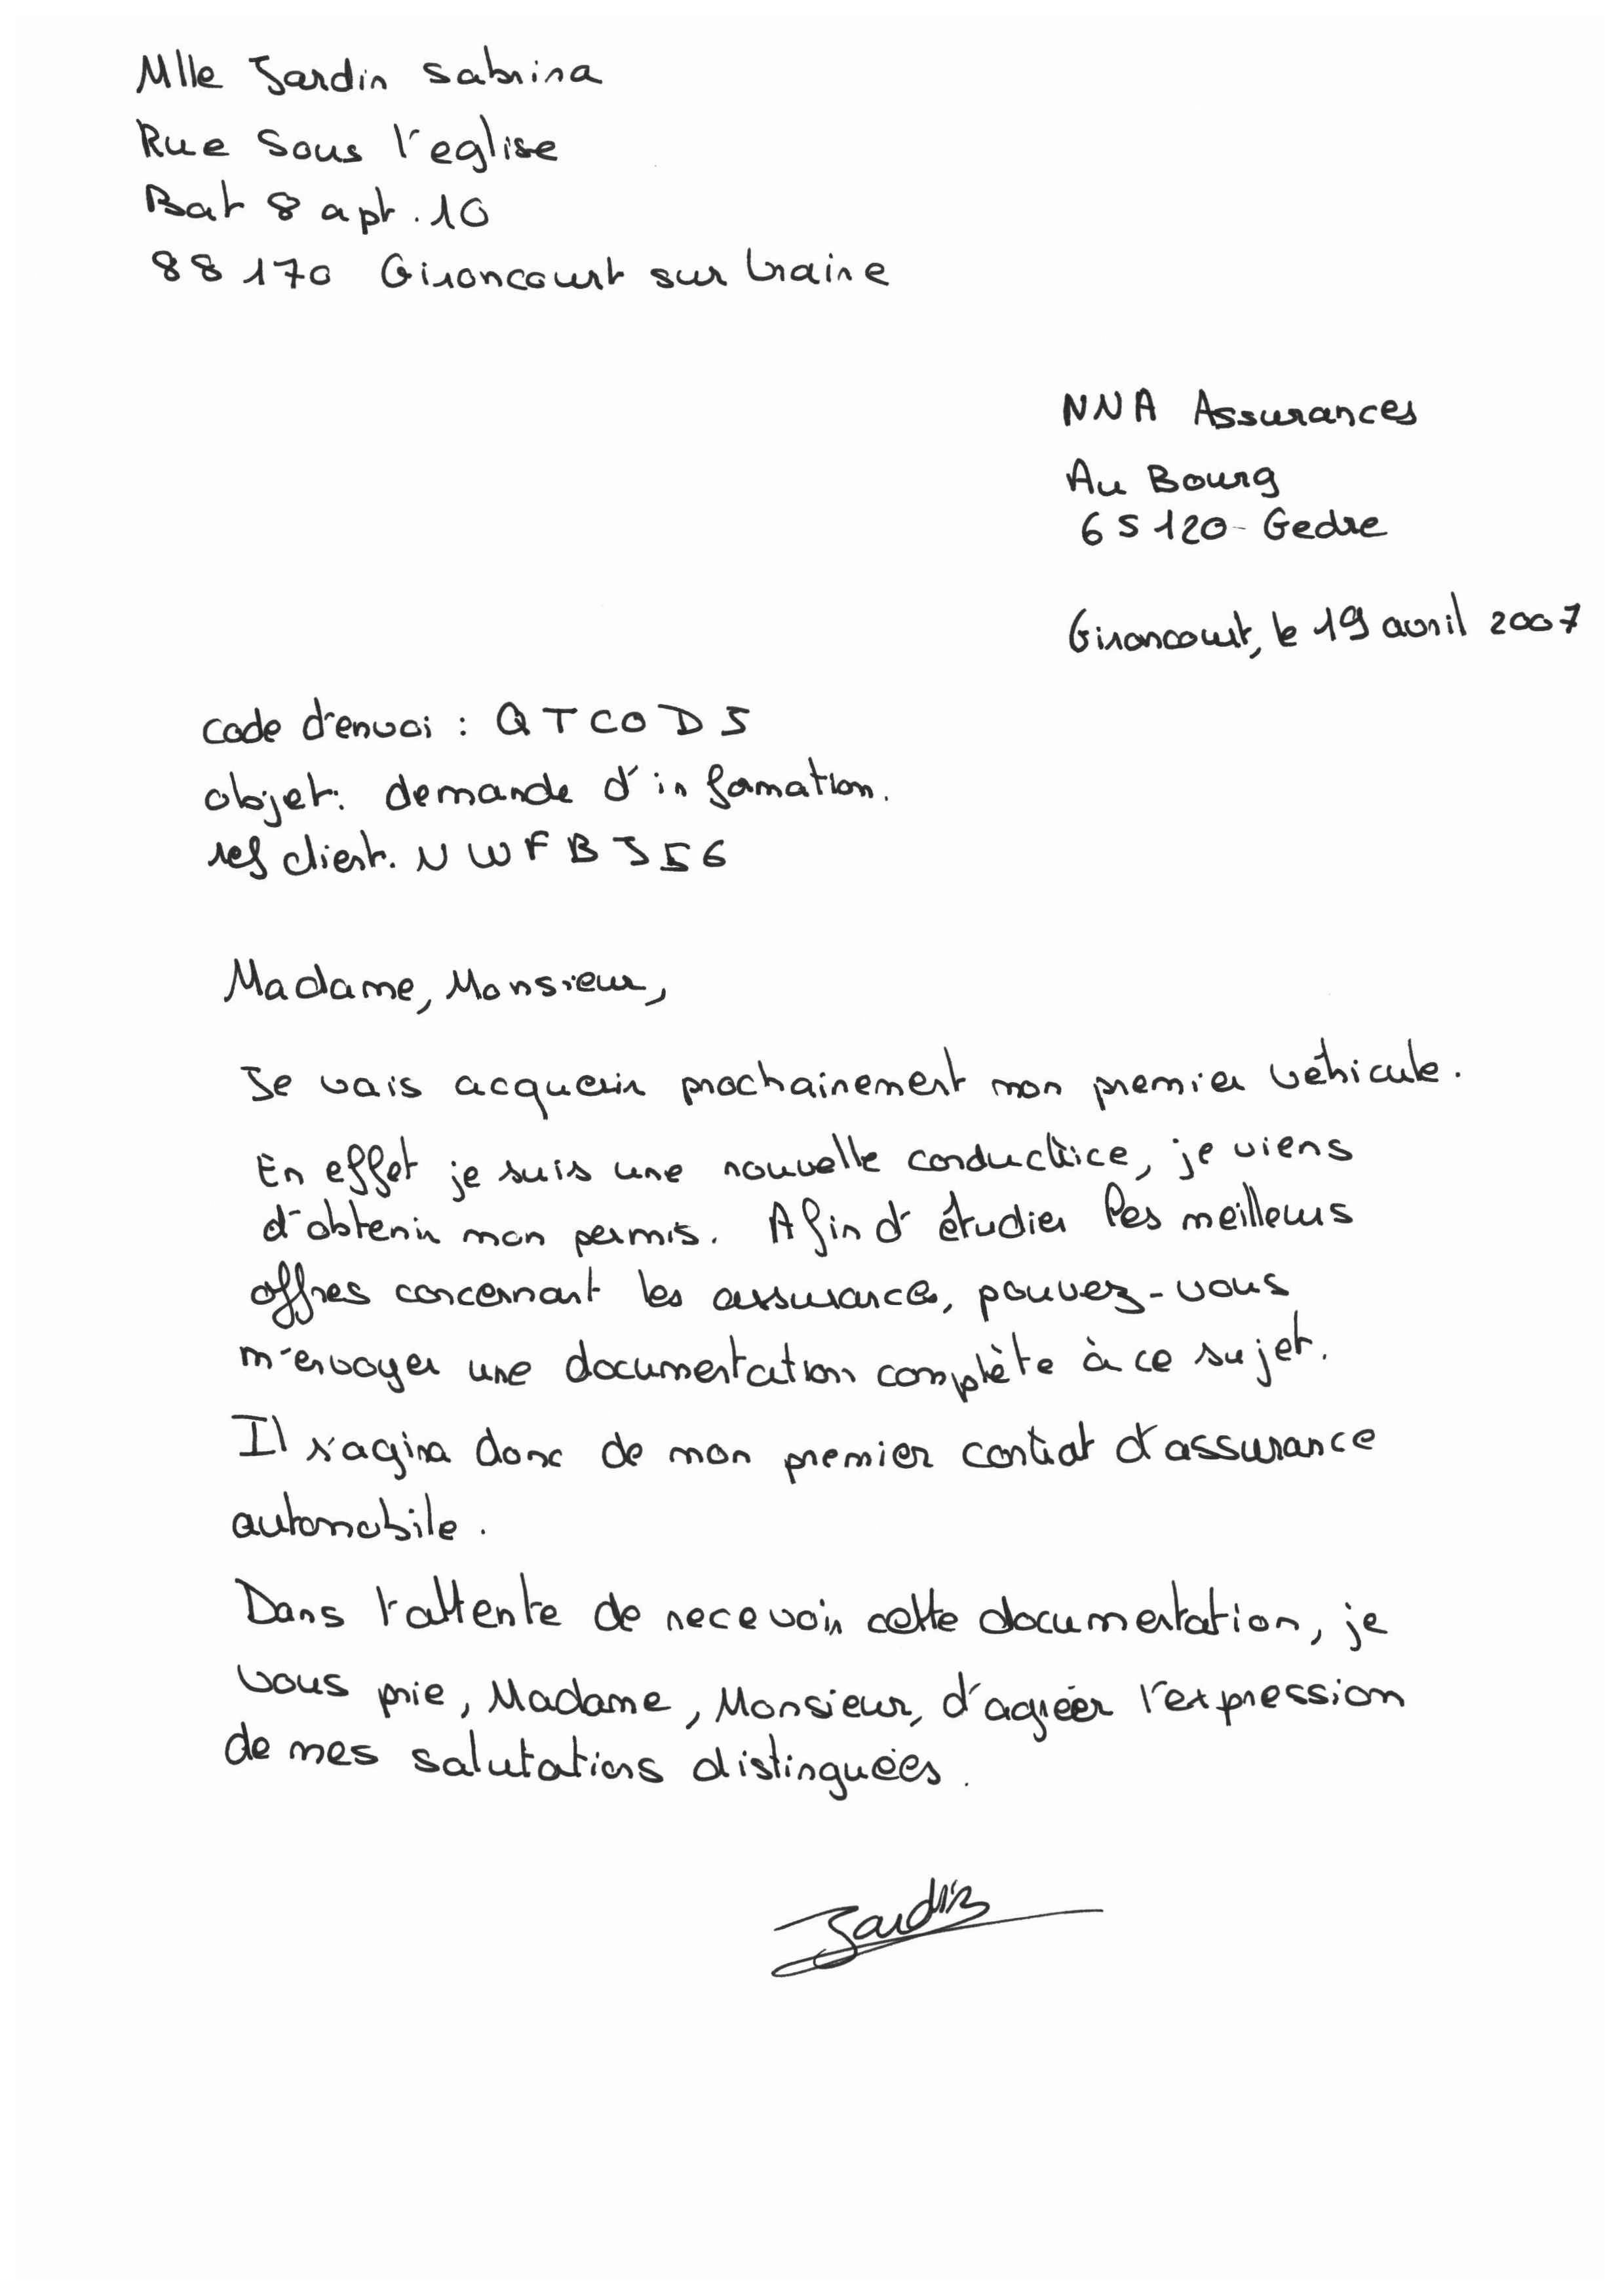 Mlle Jardin Sabrina
Rue Sous l'eglise
Bat 8 apt. 10
88170 Gironcourt sur Vraine
NNA Assurances
Au Bourg
65120 - Gedre
Gironcourt, le 19 avril 2007
code d'envoi : QTCOD5
objet: demande d'information.
ref client. NWFBJ56
Madame, Monsieur,
Je vais acquerir prochainement mon premier véhicule.
En effet je suis une nouvelle conductrice, je viens
d'obtenir mon permis. Afin d'étudier les meilleurs
offres concernant les assurances, pouvez-vous
m'envoyer une documentation complète à ce sujet.
Il s'agira donc de mon premier contrat d'assurance
automobile.
Dans l'attente de recevoir cette documentation, je
vous prie, Madame, Monsieur, d'agréer l'expression
de mes salutations distinguées.
Jardin